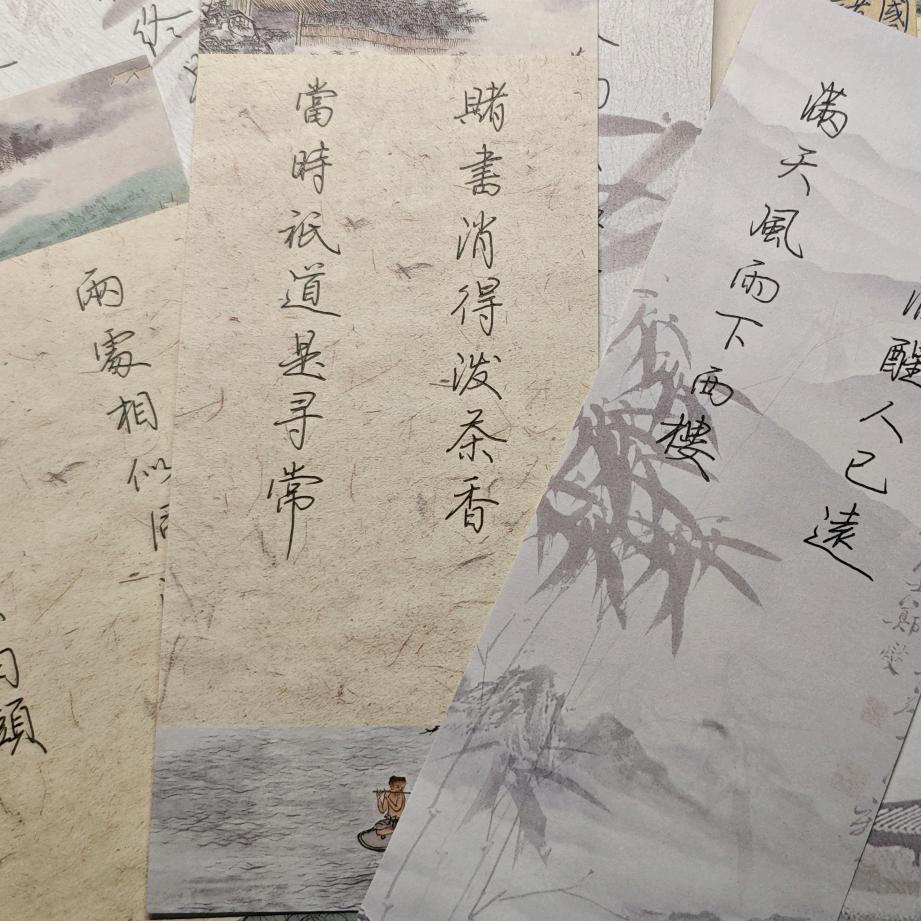 賭書消得泼茶香
當時祇道是寻常
醒人已遠
满天風雨下西樓
兩處相似同
頭